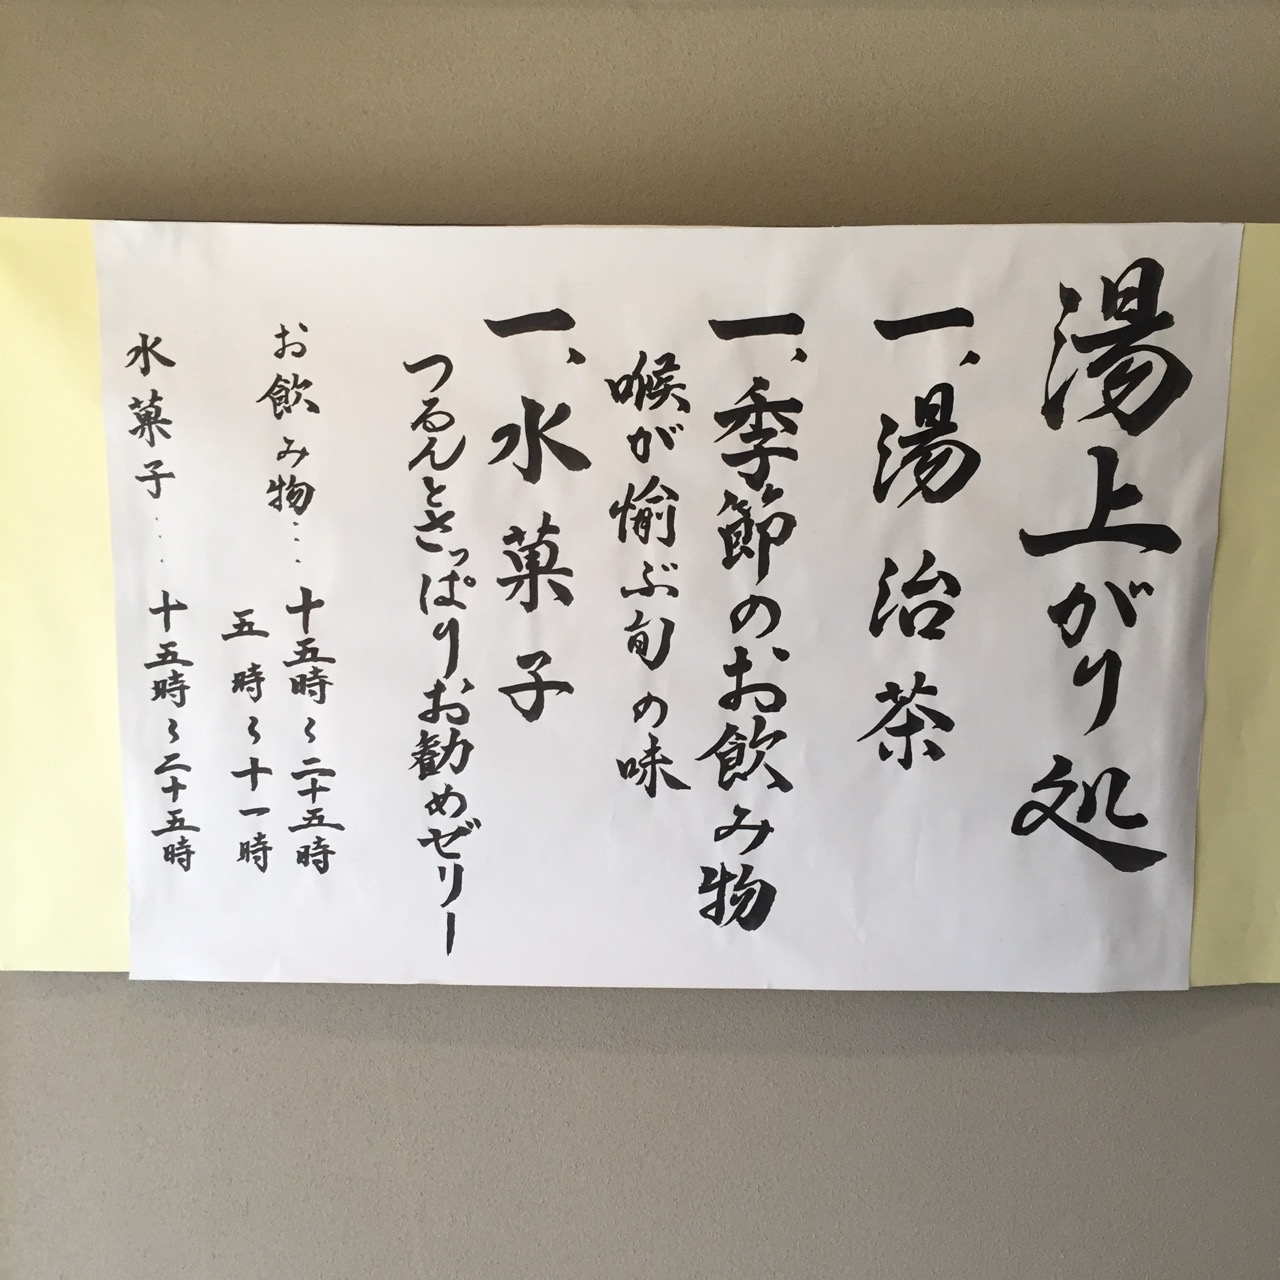 湯上がり処
一、湯治茶
一、季節のお飲み物
喉が愉ぶ旬の味
一、水菓子
つるんとさっぱりお勧めゼリー
お飲み物… 十五時〜二十五時
五時〜十一時
水菓子… 十五時〜二十五時